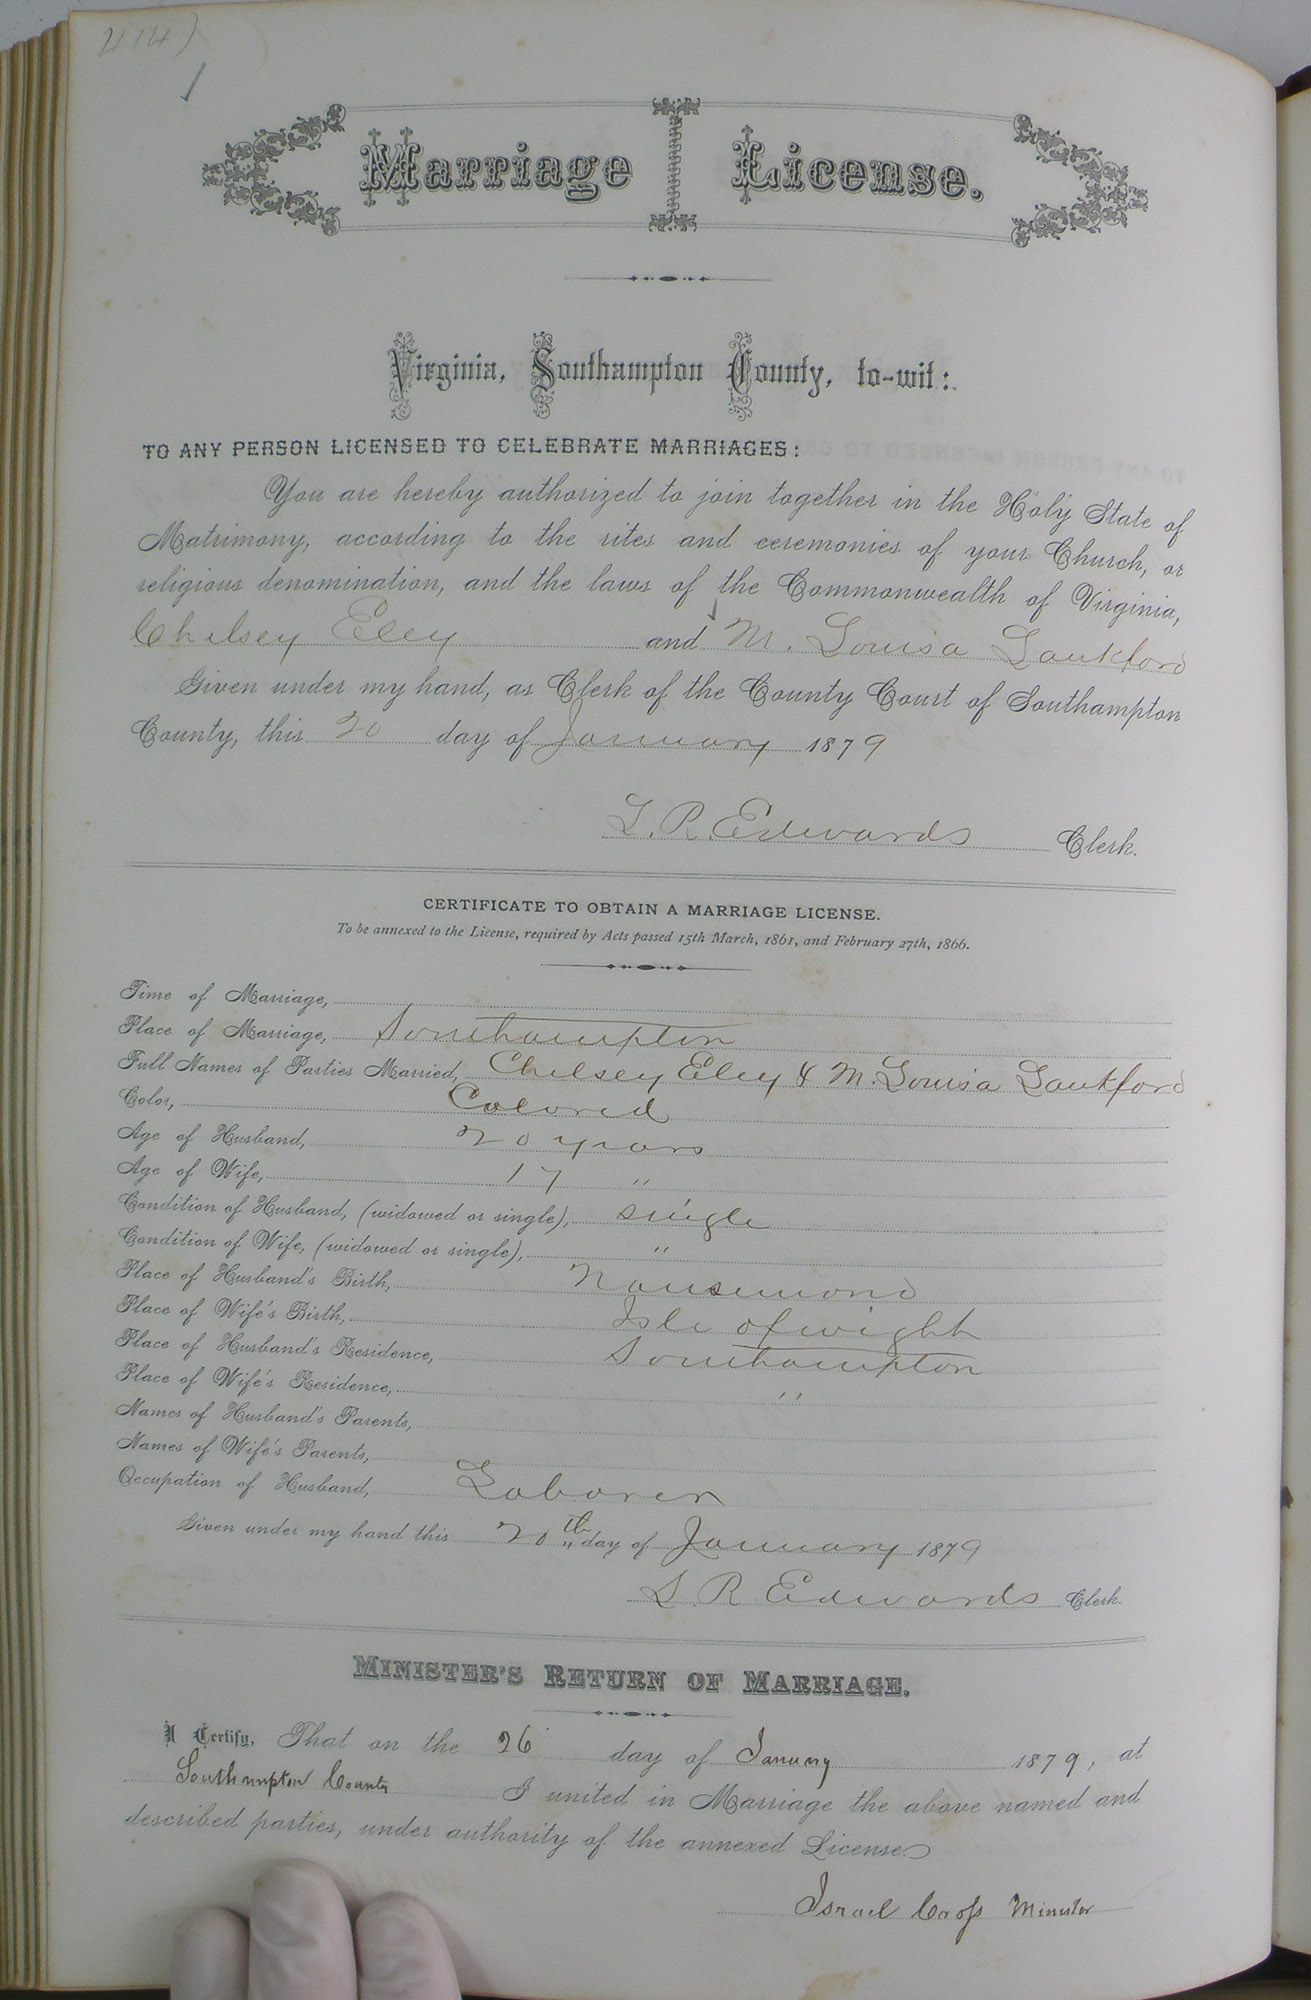 Marriage License.
Virginia, Southampton County, to-wit:
TO ANY PERSON LICENSED TO CELEBRATE MARRIAGES:
You are hereby authorized to join together in the Holy State of
Matrimony, according to the rites and ceremonies of your Church, or
religious denomination, and the laws of the Commonwealth of Virginia,
Chelsey Eley and M. Louisa Lankford
Given under my hand, as Clerk of the County Court of Southampton
County, this 20 day of January 1879
L. R. Edwards Clerk.
CERTIFICATE TO OBTAIN A MARRIAGE LICENSE.
To be annexed to the License, required by Acts passed 15th March, 1861, and February 27th, 1866.
Time of Marriage,
Place of Marriage, Southampton
Full Names of Parties Married, Chelsey Eley & M. Louisa Lankford
Color, Colored
Age of Husband, 20 years
Age of Wife, 17 "
Condition of Husband, (widowed or single), single
Condition of Wife, (widowed or single), "
Place of Husband's Birth, Nansemond
Place of Wife's Birth, Isle of wight
Place of Husband's Residence, Southampton
Place of Wife's Residence, "
Names of Husband's Parents,
Names of Wife's Parents,
Occupation of Husband, Laborer
Given under my hand this 20th day of January 1879
L R Edwards Clerk.
MINISTER'S RETURN OF MARRIAGE.
I Certify, That on the 26 day of January 1879, at
Southampton County I united in Marriage the above named and
described parties, under authority of the annexed License.
Israel Cross Minister